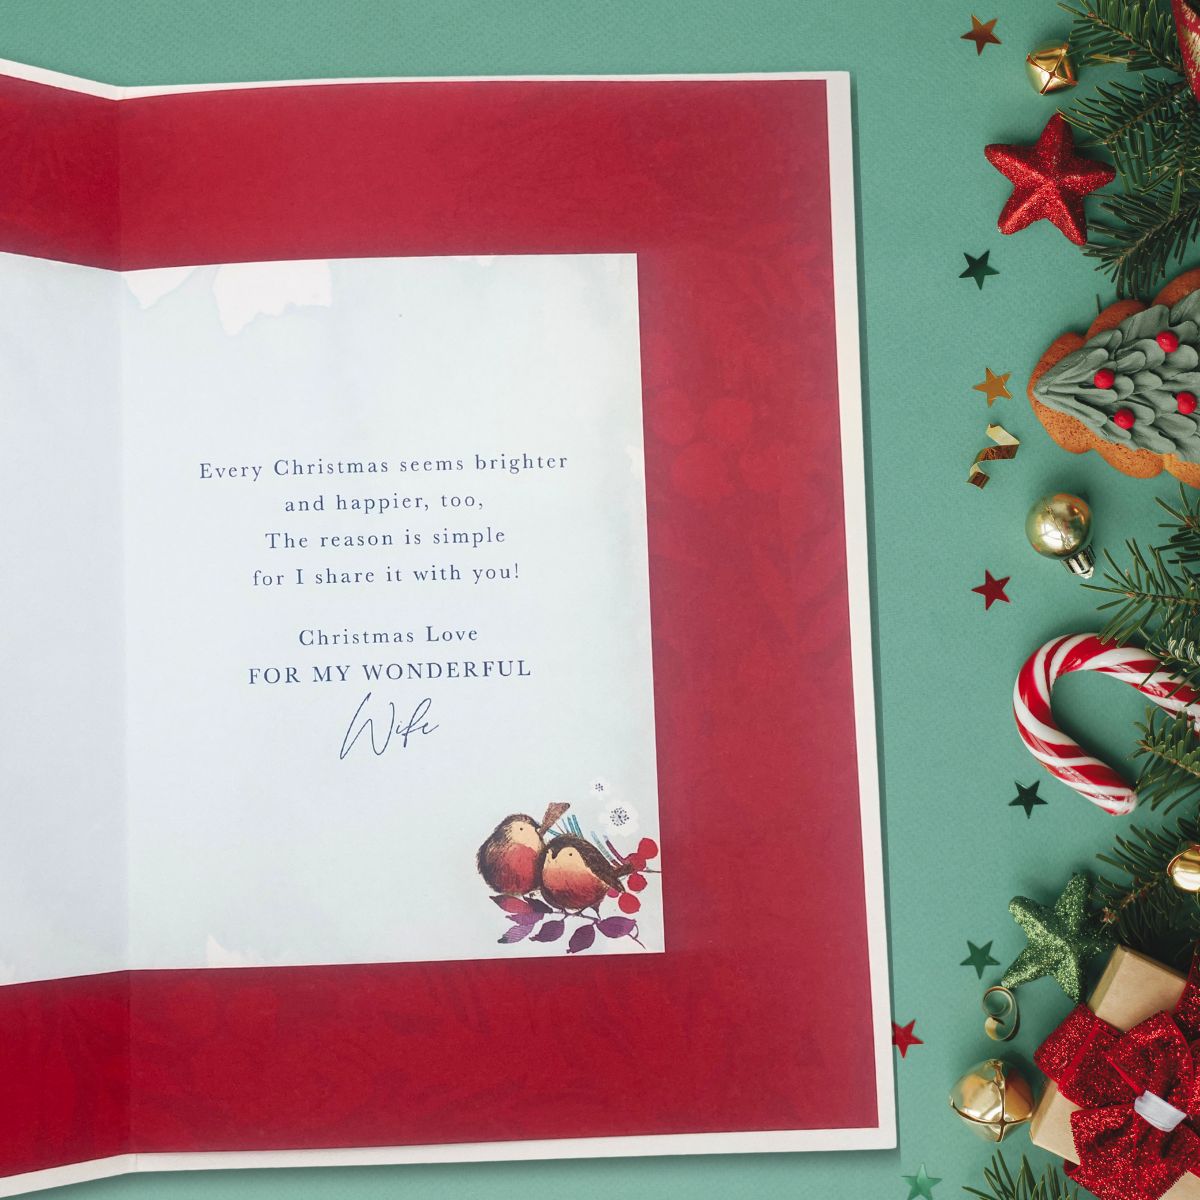 Every Christmas seems brighter
and happier, too,
The reason is simple
for I share it with you!
Christmas Love
FOR MY WONDERFUL
Wife